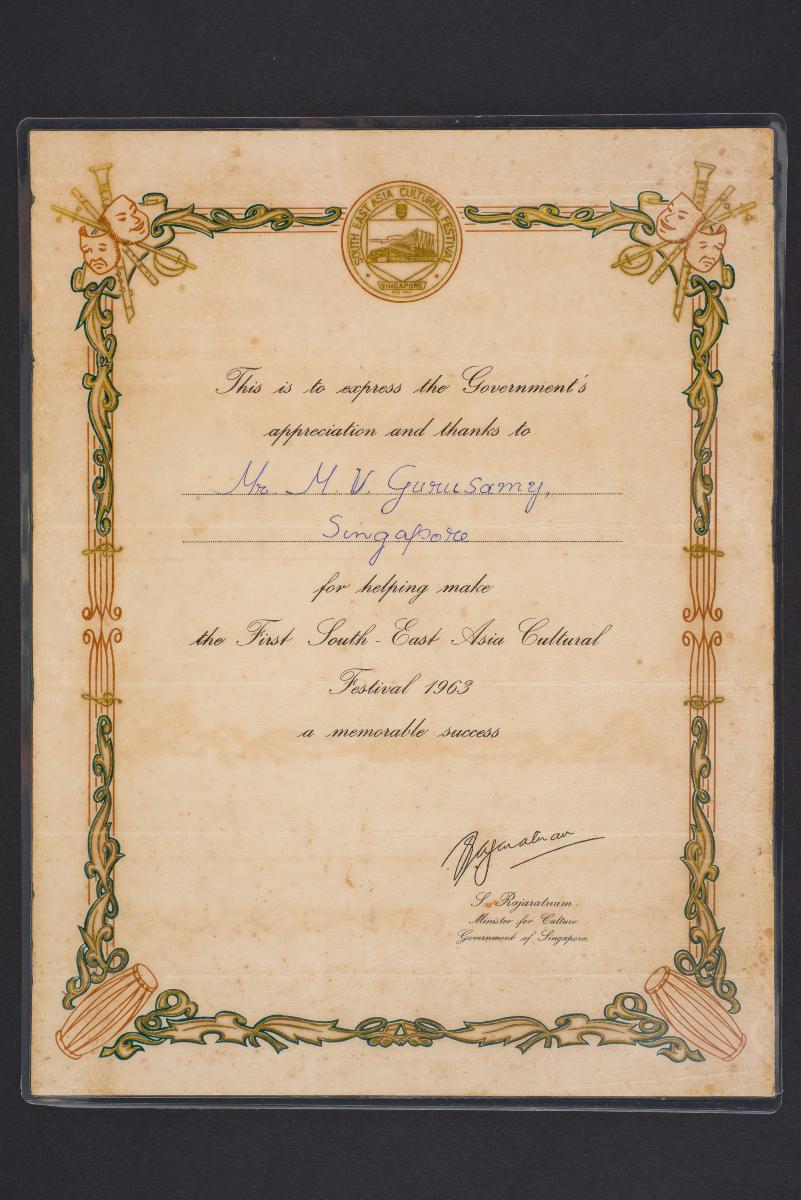 SOUTH EAST ASIA CULTURAL FESTIVAL
SINGAPORE
This is to express the Government's
appreciation and thanks to
Mr. M. V. Gurusamy,
Singapore
for helping make
the First South-East Asia Cultural
Festival 1963
a memorable success
S. Rajaratnam
S. Rajaratnam.
Minister for Culture
Government of Singapore.